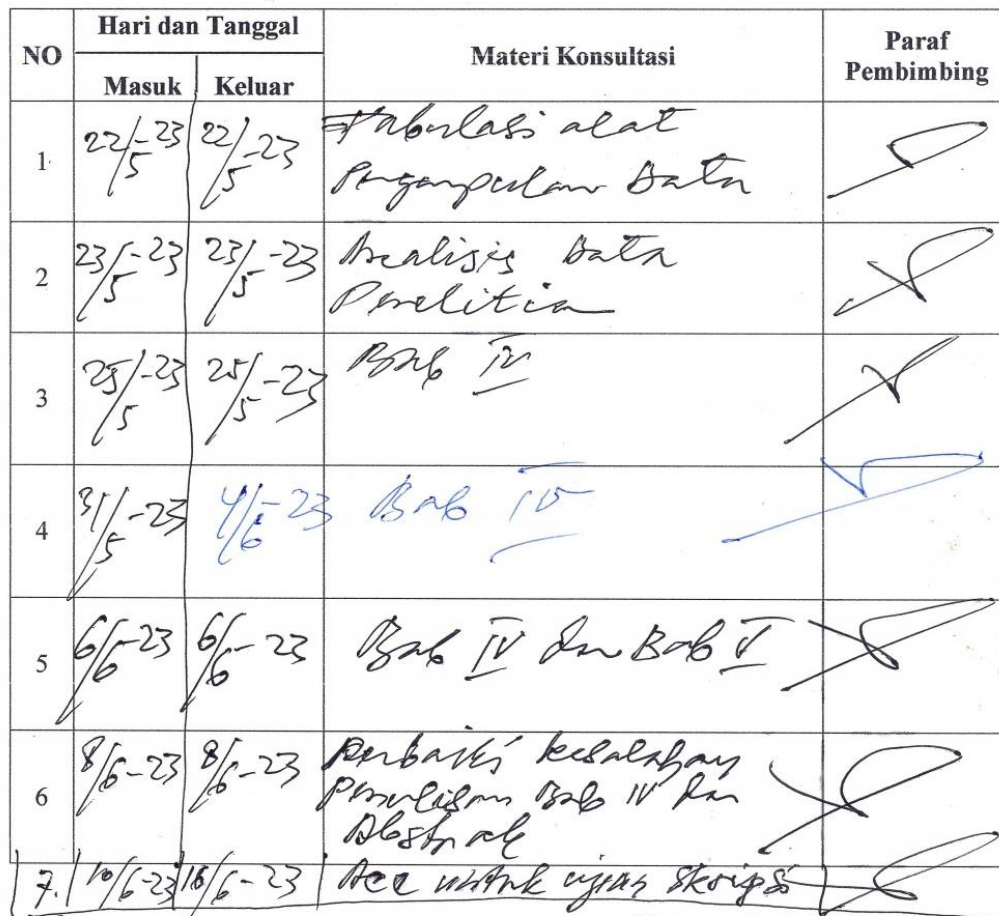 Hari dan Tanggal
NO Materi Konsultasi Paraf Pembimbing
Masuk Keluar
1. 22/5-23 22/5-23 Tabulasi alat
Pengumpulan Data
2 23/5-23 23/5-23 Analisis Data
Penelitian
3 25/5-23 25/5-23 Bab IV
4 31/5-23 4/6-23 Bab IV
5 6/6-23 6/6-23 Bab IV dan Bab V
6 8/6-23 8/6-23 Perbaiki kesalahan
Penulisan Bab IV dan
Abstrak
7. 10/6-23 /6-23 Acc untuk ujian skripsi